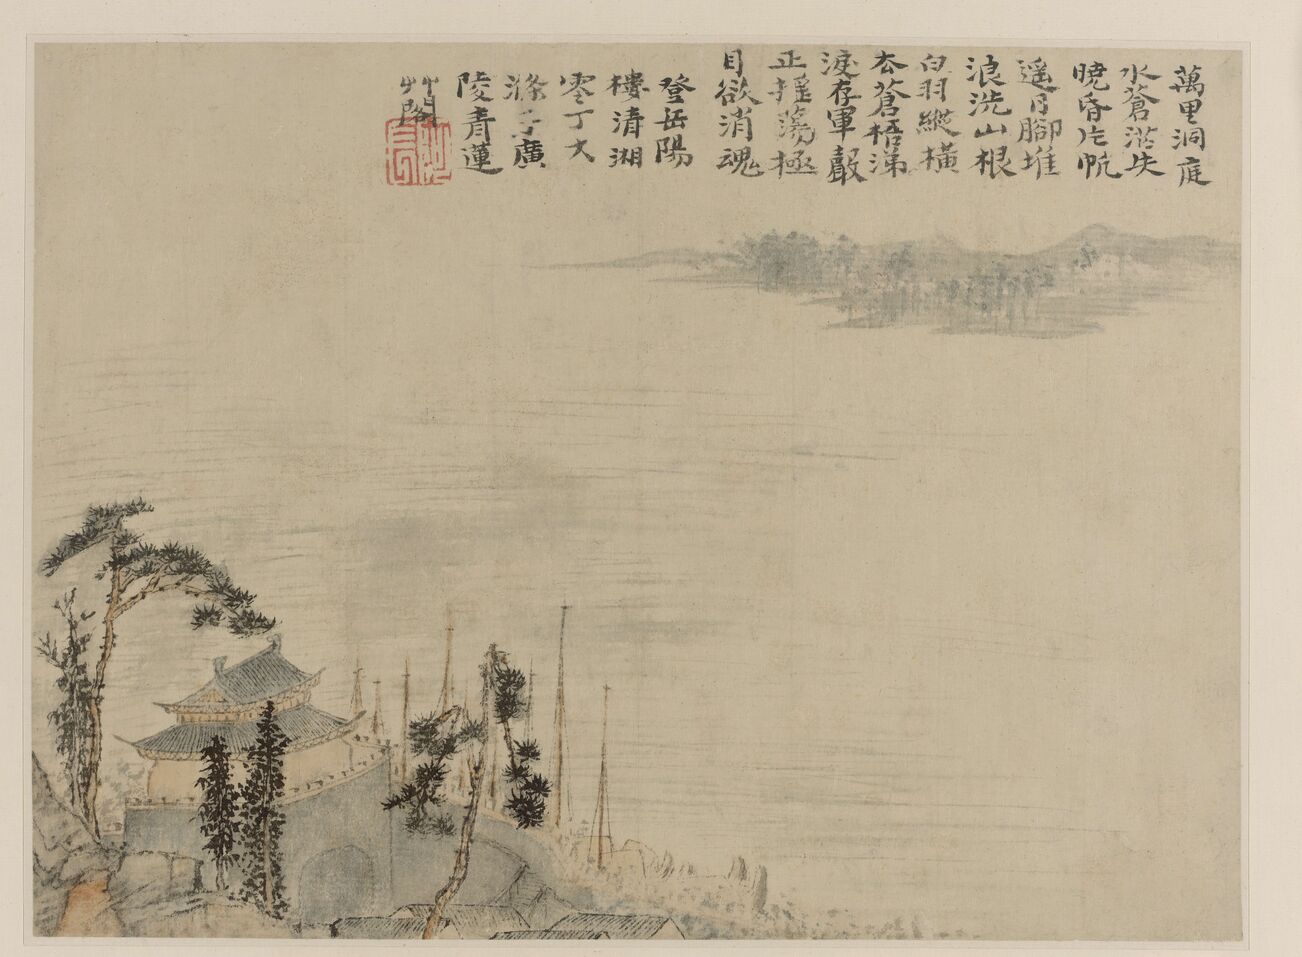 萬里洞庭
水蒼茫失
曉昏片帆
遥月腳堆
浪洗山根
白羽縱橫
去蒼梧涕
淚存軍聲
正摇蕩極
目欲消魂
登岳陽
樓清湘
零丁大
滌子廣
陵青蓮
艸閣